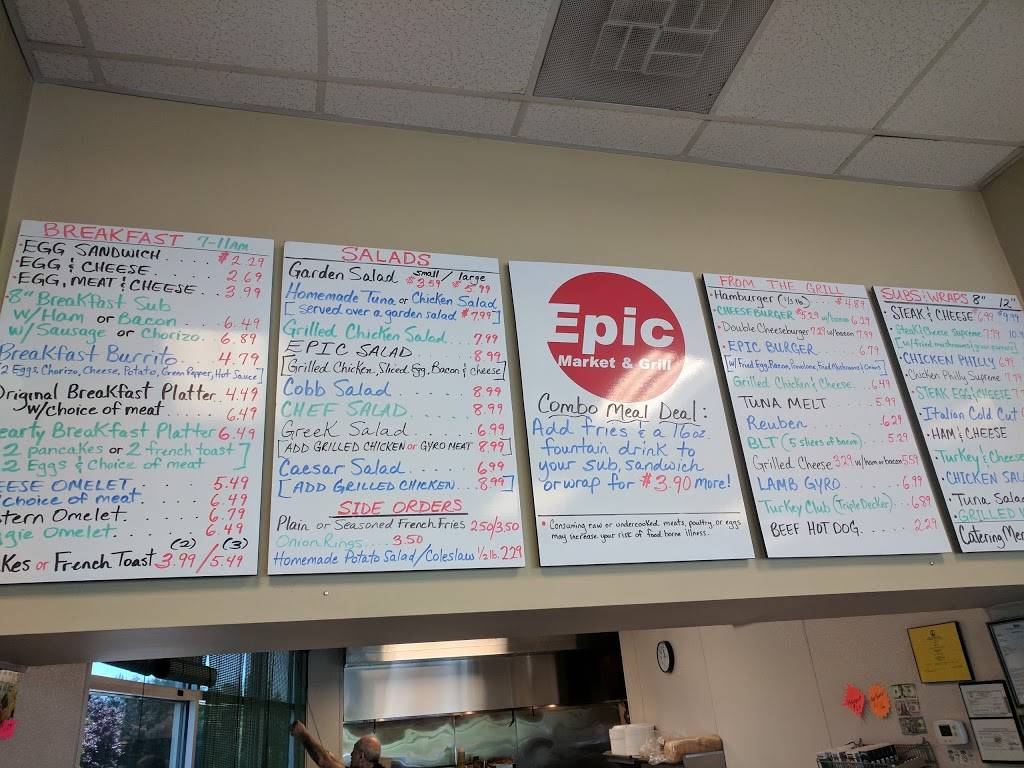 BREAKFAST 7-11am
·EGG SANDWICH..... $2.29
·EGG & CHEESE..... 2.69
·EGG, MEAT & CHEESE... 3.99
8" Breakfast Sub
w/Ham or Bacon.... 6.49
w/Sausage or Chorizo. 6.89
Breakfast Burrito.... 4.79
2 Eggs, Chorizo, Cheese, Potato, Green Pepper, Hot Sauce]
Original Breakfast Platter. 4.49
w/choice of meat 6.49
earty Breakfast Platter 6.49
2 pancakes or 2 french toast
2 Eggs & Choice of meat]
EESE OMELET..... 5.49
choice of meat. 6.49
stern Omelet..... 6.79
gie Omelet..... 6.49
(2) (3)
kes or French Toast 3.99/5.49
SALADS
Garden Salad small $3.59 / large $5.99
Homemade Tuna or Chicken Salad
[served over a garden salad $7.99]
Grilled Chicken Salad 7.99
EPIC SALAD..... 8.99
[Grilled Chicken, Sliced Egg, Bacon & cheese]
Cobb Salad..... 8.99
CHEF SALAD..... 8.99
Greek Salad..... 6.99
[ADD GRILLED CHICKEN or GYRO MEAT 8.99]
Caesar Salad..... 6.99
[ADD GRILLED CHICKEN.... 8.99]
SIDE ORDERS
Plain or Seasoned French Fries 2.50/3.50
Onion Rings.... 3.50
Homemade Potato Salad/Coleslaw 1/2 lb. 2.29
Epic
Market & Grill
Combo Meal Deal:
Add fries & a 16oz.
fountain drink to
your sub, sandwich
or wrap for $3.90 more!
* Consuming raw or undercooked meats, poultry, or eggs
may increase your risk of food borne illness.
FROM THE GRILL
·Hamburger (1/3 lb)... $4.89
·CHEESEBURGER $5.29 w/bacon 6.29
·Double Cheeseburger 7.29 w/bacon 7.99
·EPIC BURGER..... 6.79
[w/Fried Egg, Bacon, Provolone, Fried Mushrooms & Onions]
Grilled Chicken & Cheese. 6.49
TUNA MELT..... 5.99
Reuben..... 6.29
BLT (5 slices of bacon). 5.29
Grilled Cheese 3.29 w/ham or bacon 5.59
LAMB GYRO..... 6.99
Turkey Club (Triple Decker). 6.89
BEEF HOT DOG..... 2.29
SUBS & WRAPS 8" 12"
·STEAK & CHEESE 6.99 9.99
·Steak & Cheese Supreme 7.79 10.
[w/fried mushrooms, green peppers
·CHICKEN PHILLY 6.99
·Chicken Philly Supreme 7.79
·STEAK EGG & CHEESE 7.
·Italian Cold Cut
·HAM & CHEESE
·Turkey & Cheese
·CHICKEN SAL
·Tuna Salad
·GRILLED
Catering Me